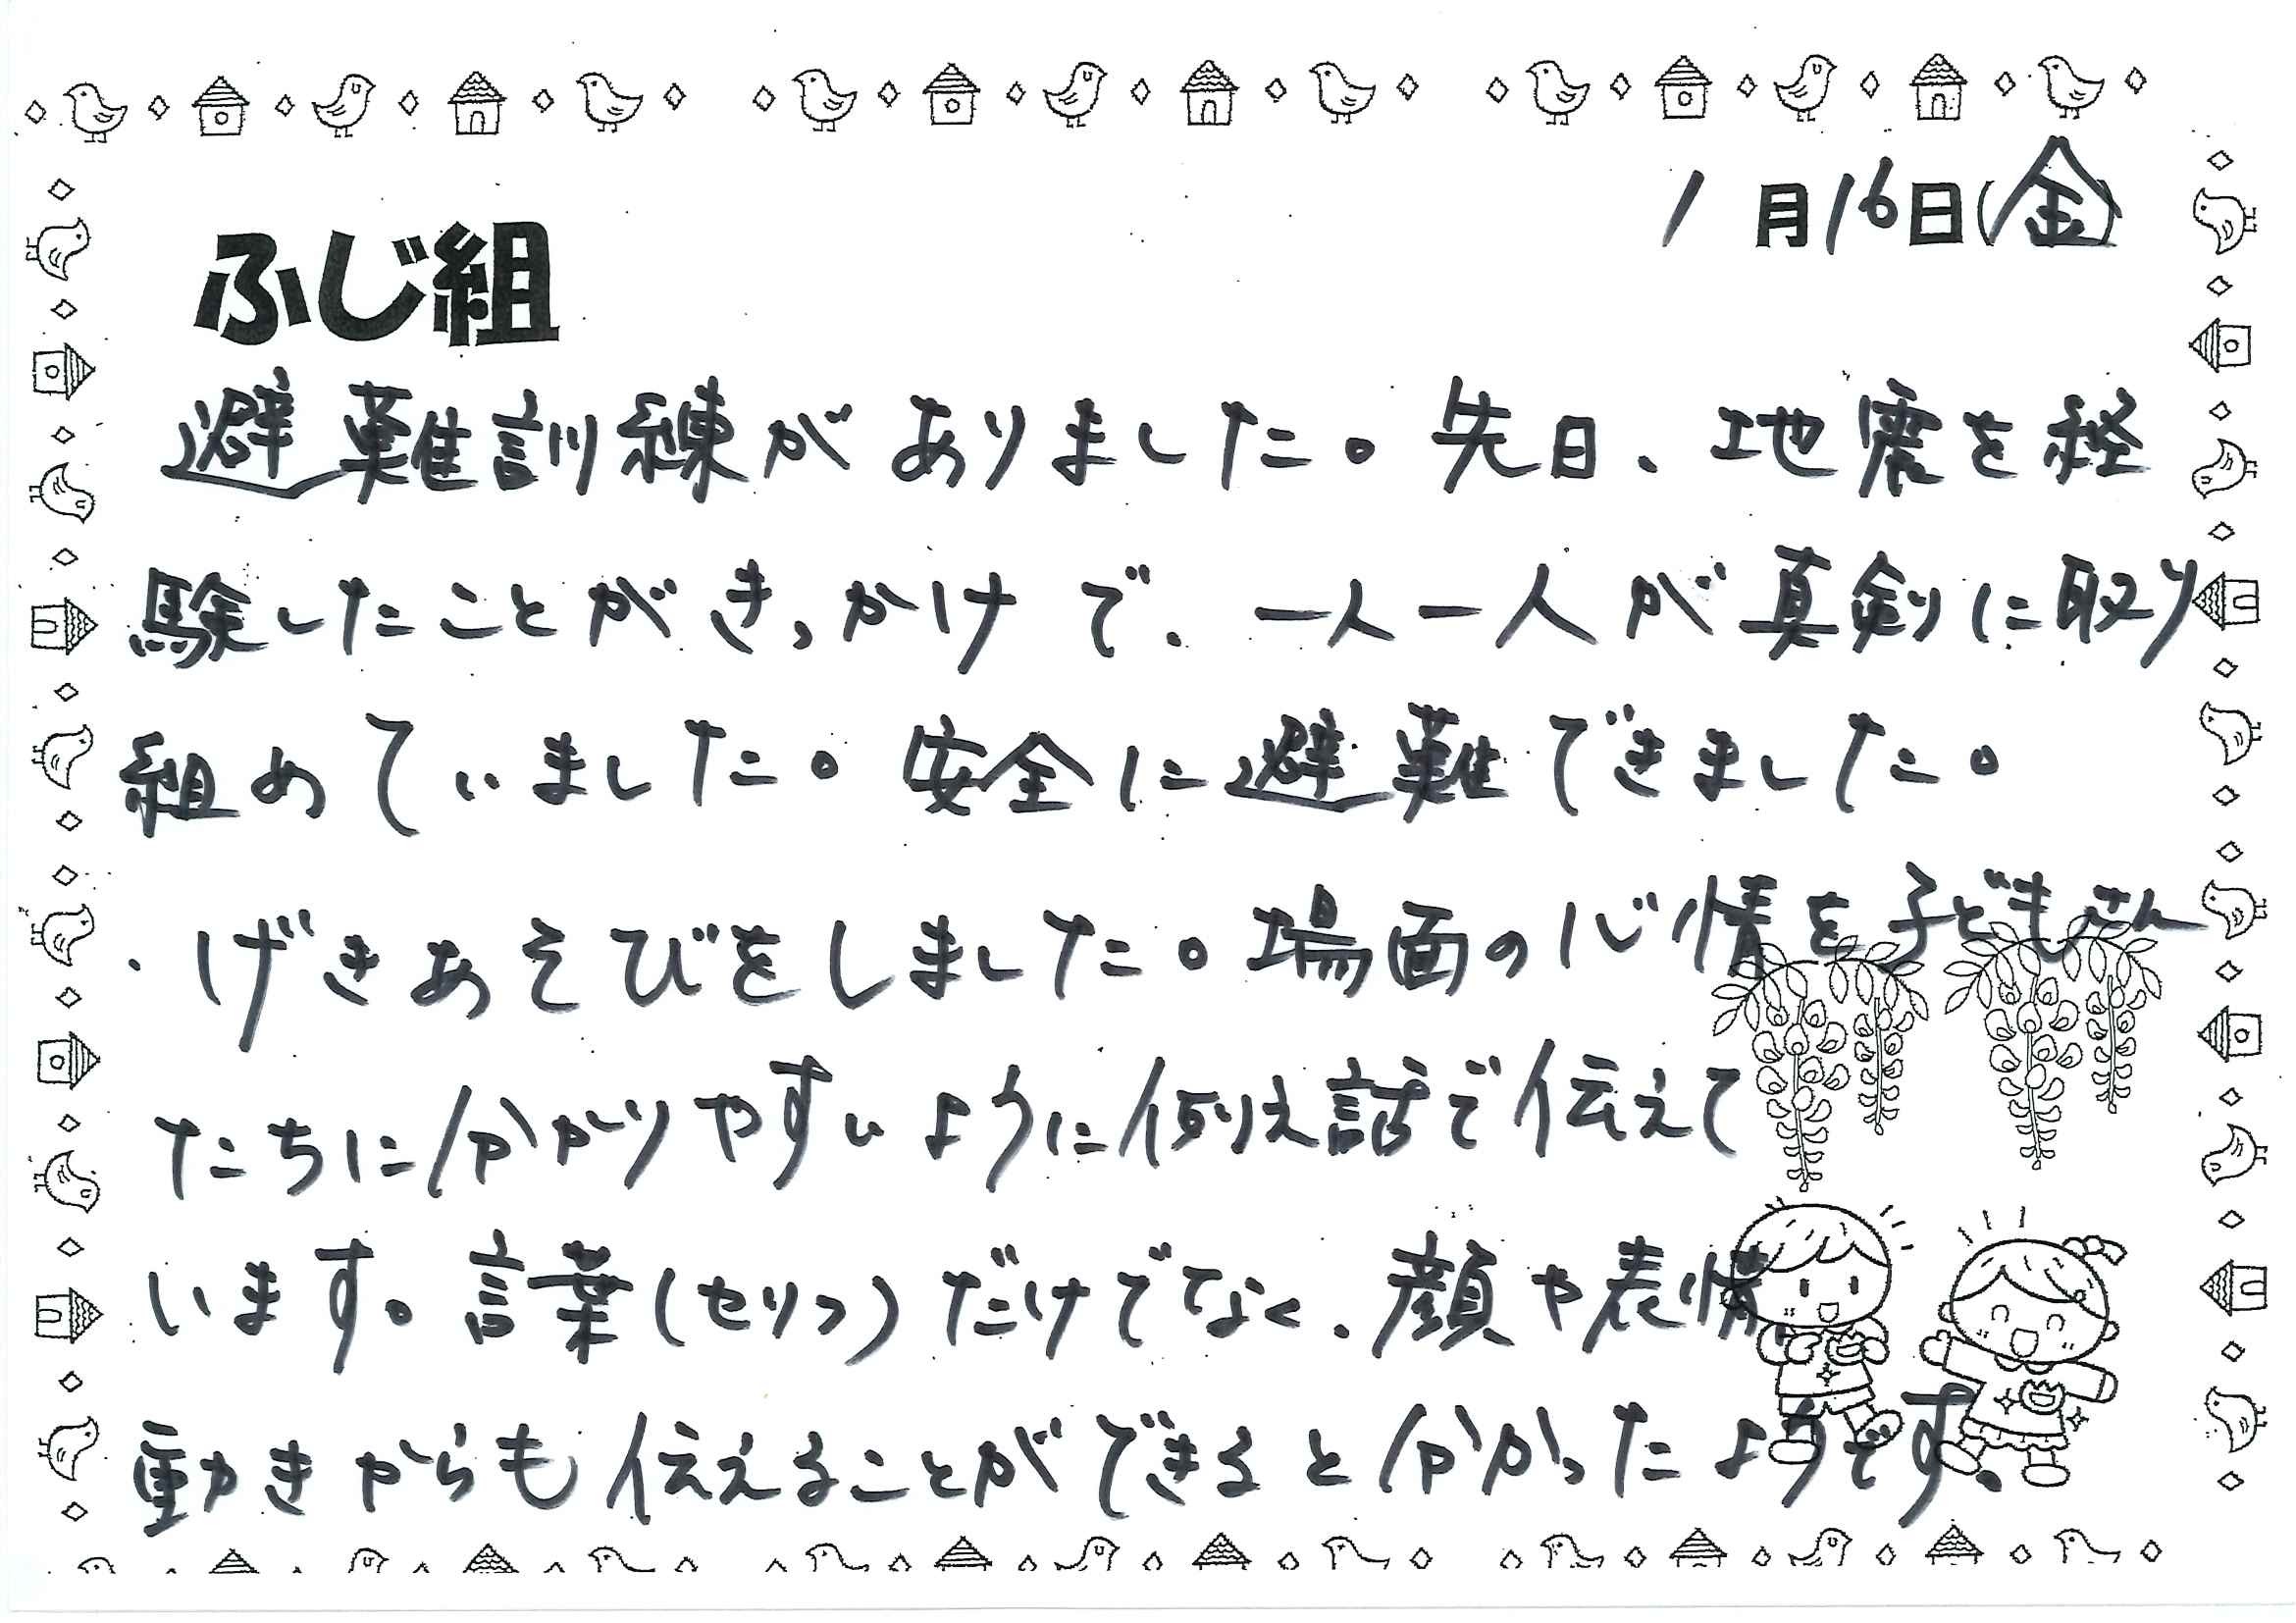 1月16日(金)
ふじ組
避難訓練がありました。先日、地震を経
験したことがきっかけで、一人一人が真剣に取り
組めていました。安全に避難できました。
・げきあそびをしました。場面の心情を子どもさん
たちに分かりやすいように例え話で伝えて
います。言葉(セリフ)だけでなく、顔や表情、
動きからも伝えることができると分かったようです。